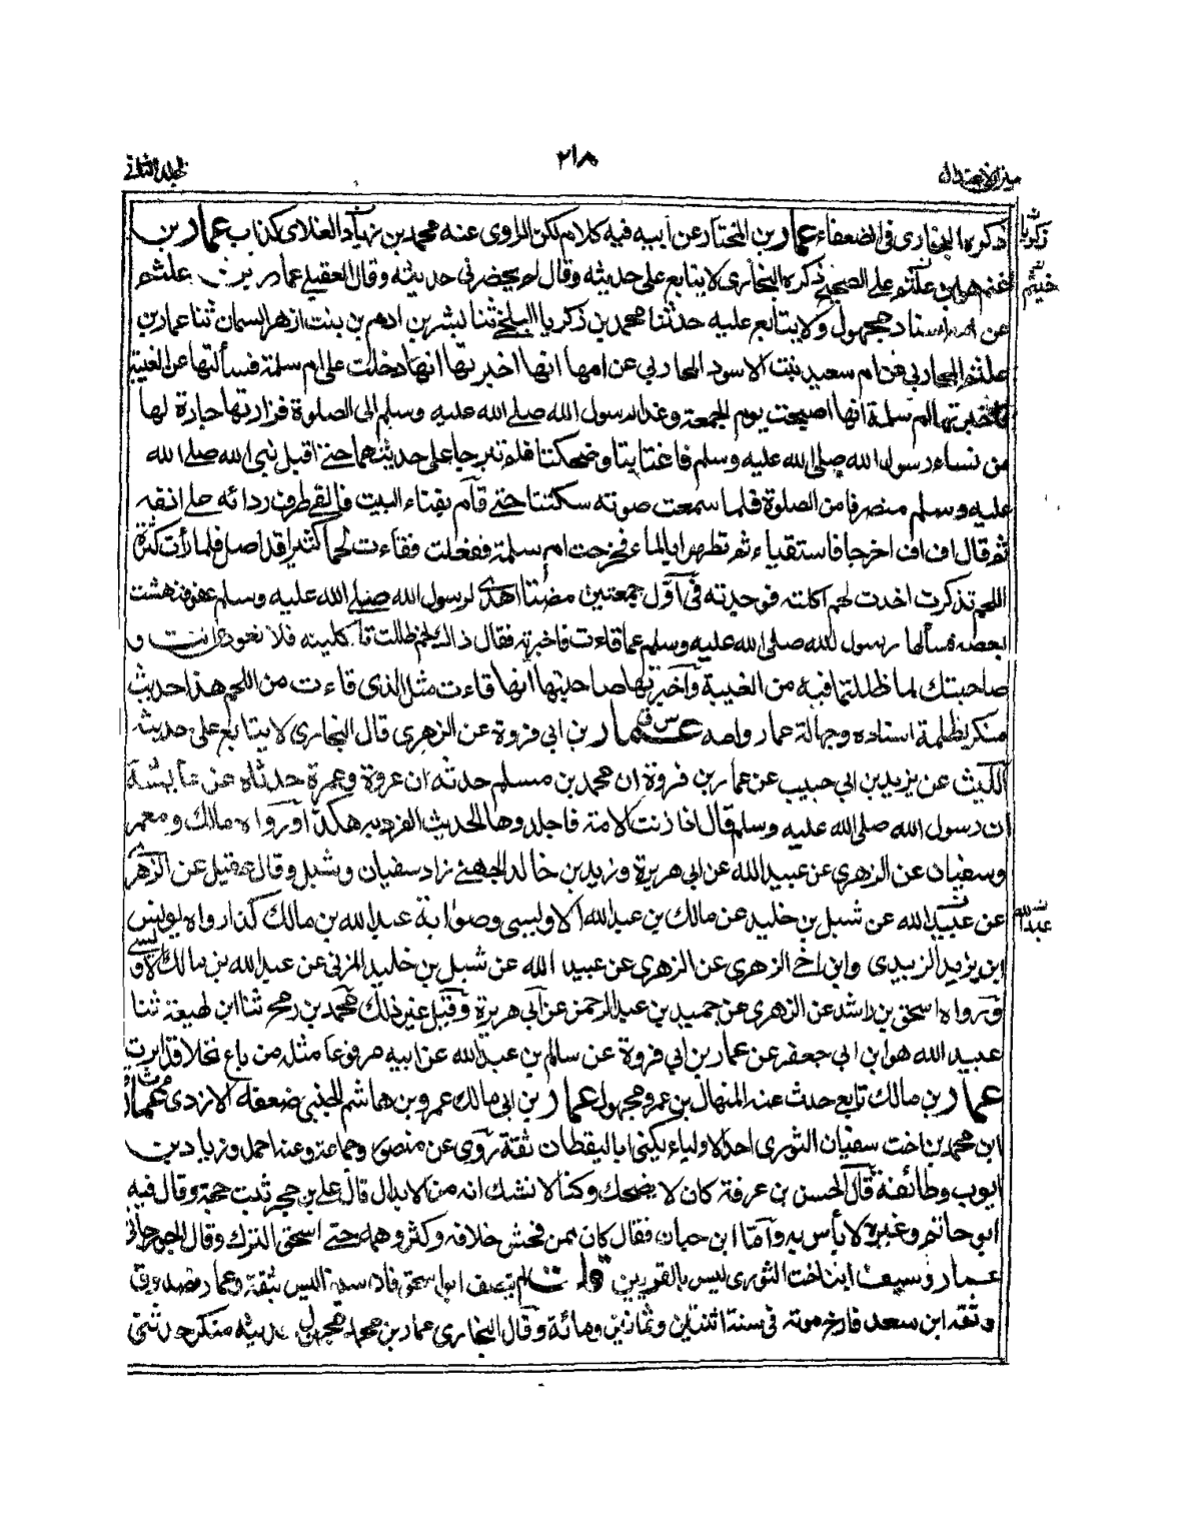 ميزان الاعتدال
٢١٨
المجلد الثاني
ذكره البخارى فى الضعفاء عمار بن المختار عن ابيه فيه كلام لكن الراوى عنه محمد بن زياد الغلابى كذاب عمار بن
زكريا
علثم على الصحيح ذكره البخارى لا يتابع على حديثه وقال لم يحضرنى حديثه وقال العقيلى عمار بن علثم
خيثم
عن اسناد مجهول ولا يتابع عليه حدثنا محمد بن زكريا البلخى ثنا بشر بن ادهم بن بنت ازهر السمان ثنا عمار بن
علثم المحاربى عن ام سعيد بنت الاسود المحاربى عن امها انها اخبرتها انها دخلت على ام سلمة فسألتها عن الغيبة
فاخبرتها ام سلمة انها اصبحت يوم الجمعة وغدا رسول الله صلى الله عليه وسلم الى الصلوة فزارتها جارة لها
من نساء رسول الله صلى الله عليه وسلم فاغتابتا وضحكتا فلم تبرحا على حديثهما حتى اقبل نبى الله صلى الله
عليه وسلم منصرفا من الصلوة فلما سمعت صوته سكتتا حتى قام بفناء البيت فالقى طرف ردائه على انفه
ثم قال اف اف اخرجا فاستقياء ثم تطهرا بالماء فخرجت ام سلمة ففعلت فقاءت لحما كثيرا قد اصل فلما رأت كثرة
اللحم تذكرت احدث لحم اكلته فوجدته فى اول جمعتين مضتا اهدى لرسول الله صلى الله عليه وسلم عضو فنهشت
بعضه فسألها رسول الله صلى الله عليه وسلم عما قاءت فاخبرته فقال ذاك لحم ظللت تاكلينه فلا تعودى انت و
صاحبتك لما ظللتما فيه من الغيبة واخبرتها صاحبتها انها قاءت مثل الذى قاءت من اللحم هذا حديث
منكر لظلمة اسناده وجهالة عمار وامه عمار بن ابى فروة عن الزهرى قال البخارى لا يتابع على حديثه
الليث عن يزيد بن ابى حبيب عن عمار بن فروة ان محمد بن مسلم حدثه ان عروة وعمرة حدثاه عن عايشة
ان رسول الله صلى الله عليه وسلم قال اذا زنت الامة فاجلدوها الحديث انفرد به هكذا ورواه مالك ومعمر
وسفيان عن الزهرى عن عبيد الله عن ابى هريرة وزيد بن خالد الجهنى زاد سفيان وشبل وقال عقيل عن الزهرى
عن عبيد الله عن شبل بن خليد عن مالك بن عبد الله الاويسى وصوابه عبد الله بن مالك كذا رواه يونس
عبد الله
ابن يزيد الزبيدى وابن اخى الزهرى عن الزهرى عن عبيد الله عن شبل بن خليد المزنى عن عبد الله بن مالك الاويسى
ورواه اسحق بن راشد عن الزهرى عن حميد بن عبد الرحمن عن ابى هريرة وقيل غير ذلك محمد بن رمح ثنا ابن لهيعة ثنا
عبيد الله هو ابن ابى جعفر عن عمار بن ابى فروة عن سالم بن عبد الله عن ابيه مرفوعا مثله من باع نخلا قد ابرت
عمار بن مالك تابع حدث عنه المنهال بن عمرو مجهول عمار بن ابى مالك عمرو بن هاشم الجنبى ضعفه الازدى عمار
ابن محمد بن اخت سفيان الثورى احد الاولياء يكنى ابا اليقظان ثقة روى عن منصور وجماعة وعنه احمد وزياد بن
ايوب وطائفة قال الحسن بن عرفة كان لا يضحك وكنا لا نشك انه من الابدال قال على بن حجر ثبت حجة وقال فيه
ابو حاتم وغيره لا بأس به واما ابن حبان فقال كان ممن فحش خلافه وكثر وهمه حتى استحق الترك وقال الجوزجانى
عمار وسيف ابنا اخت الثورى ليس بالقويين قلت لم ينصف ابو اسحق فاما سيف ليس بثقة وعمار فصدوق
وثقه ابن سعد فارخ موته فى سنة اثنتين وثمانين ومائة وقال البخارى عمار بن محمد مجهول حديثه منكر حدثنى